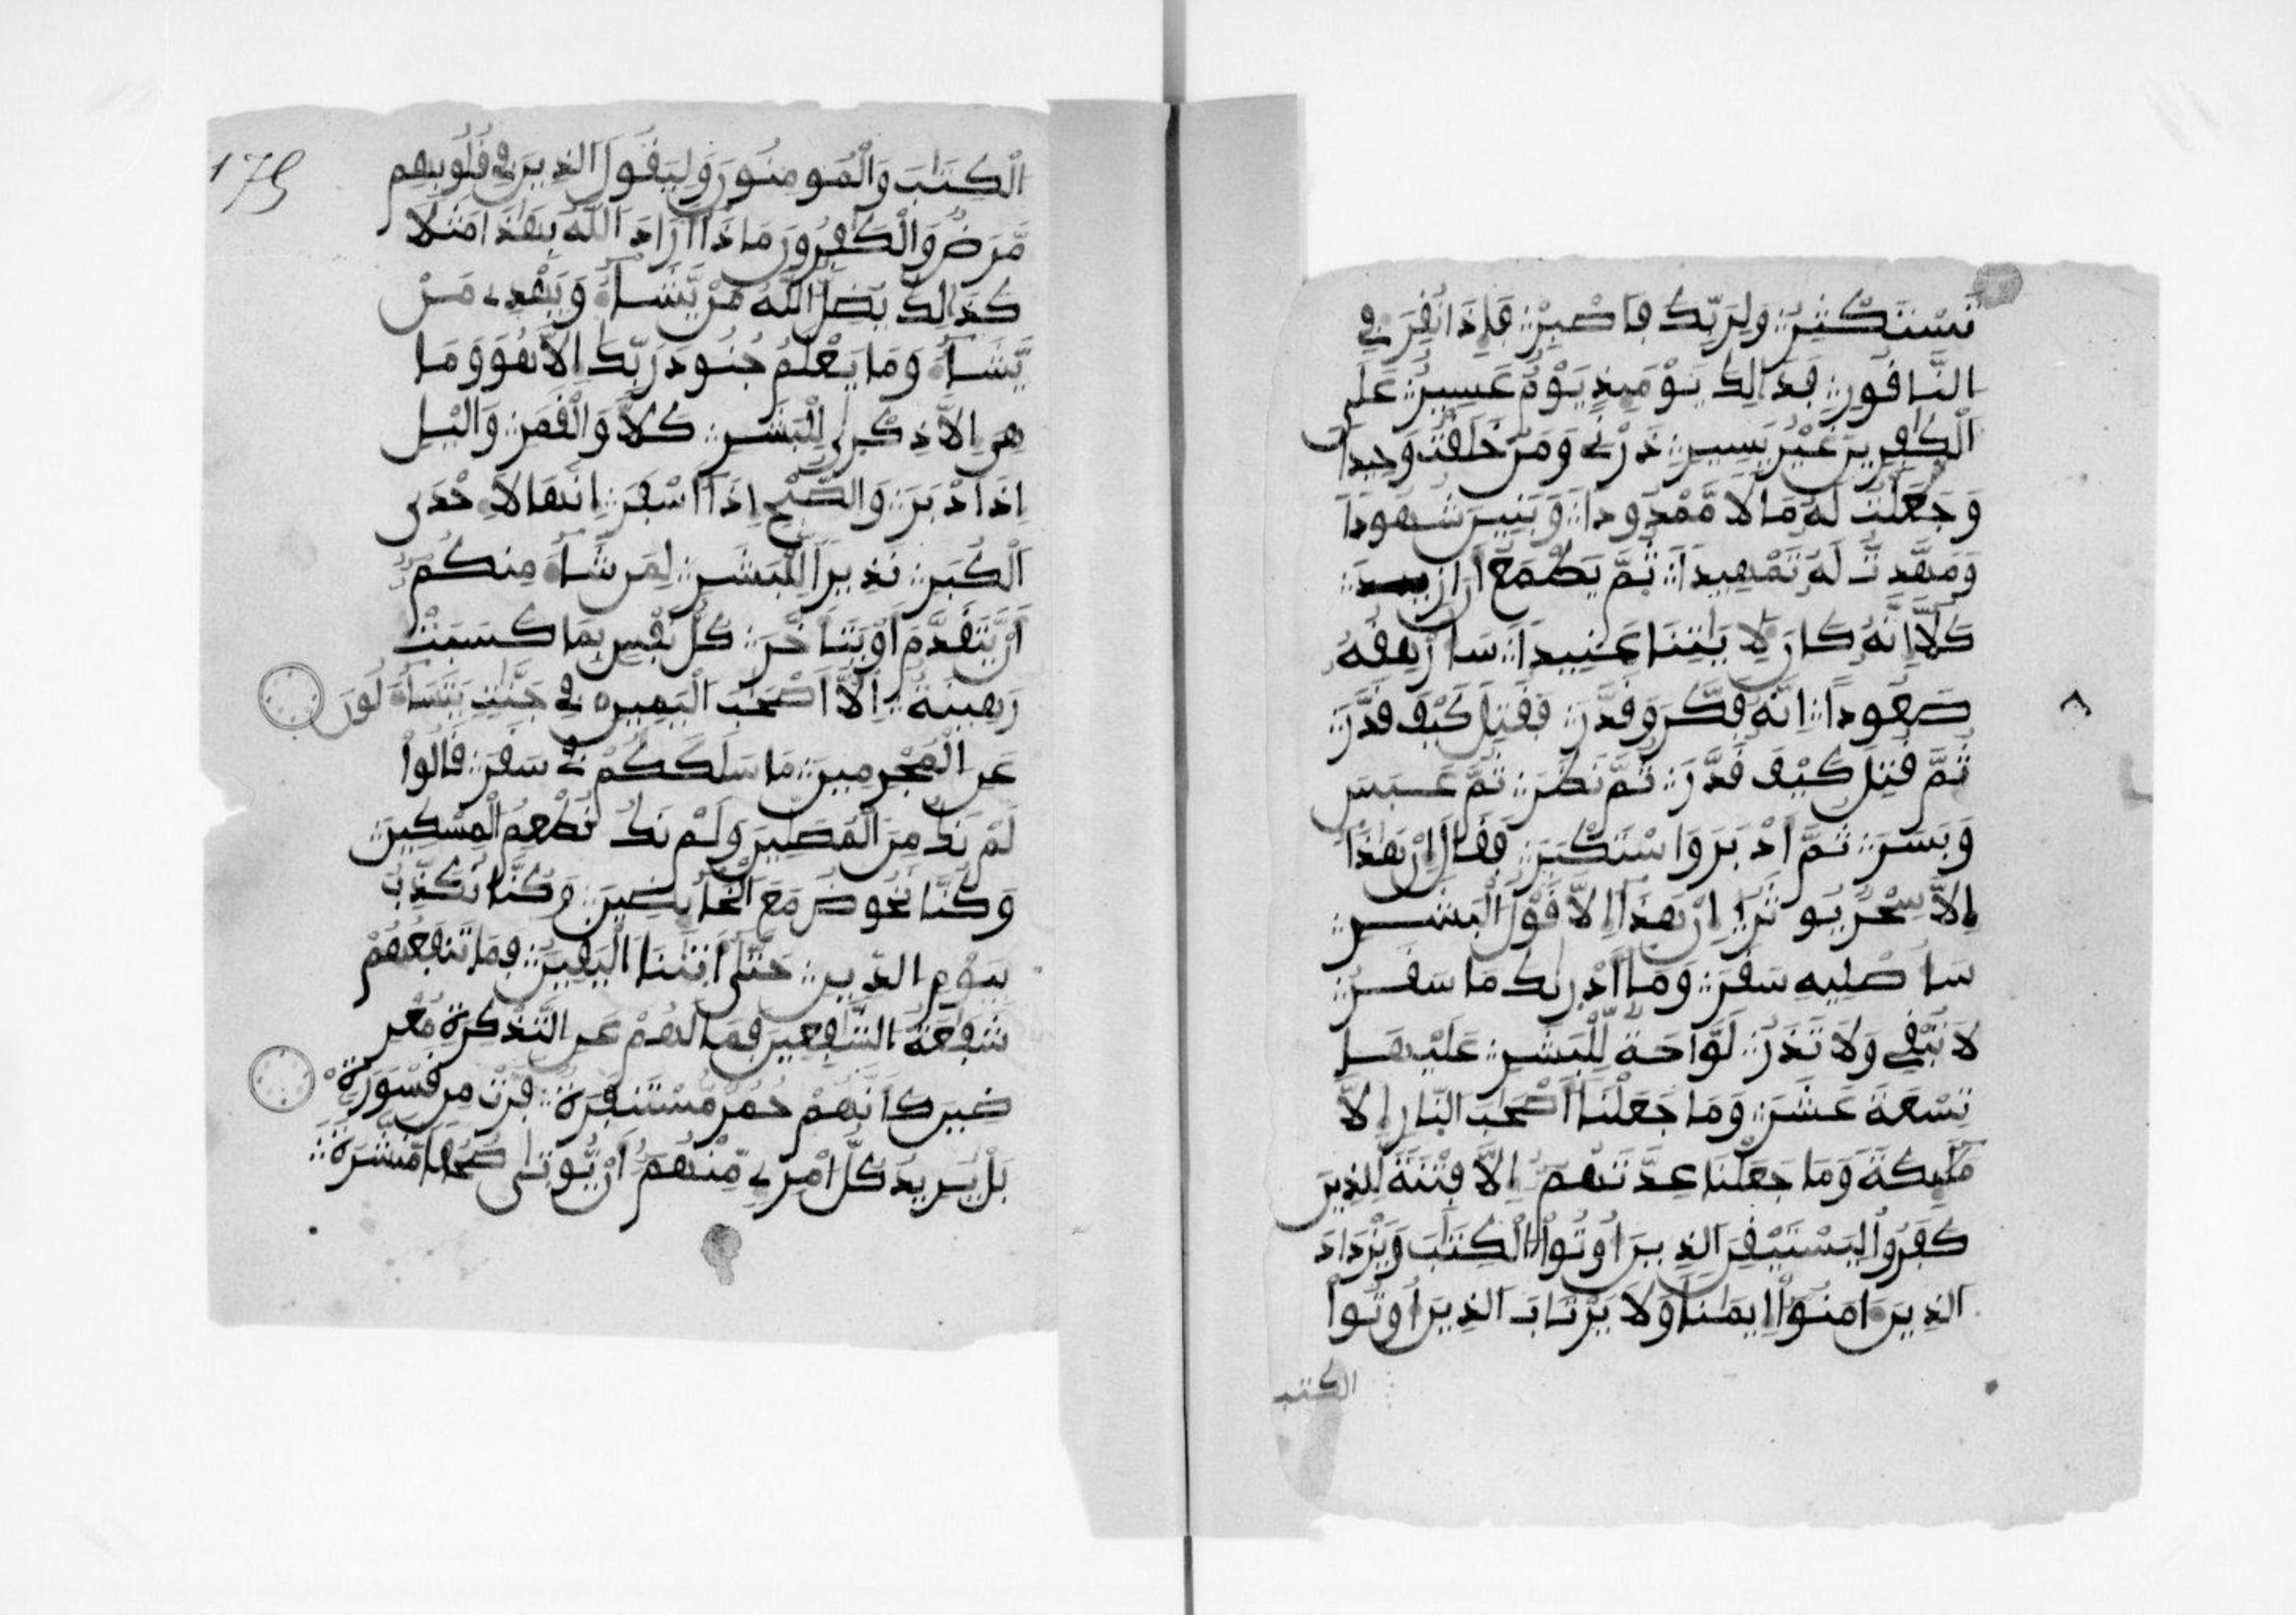 تَسْتَكْثِرُ وَلِرَبِّكَ فَاصْبِرْ فَإِذَا نُفِرَ فِي
النَّافُورِ فَذَالِكَ يَوْمَئِذٍ يَوْمٌ عَسِيرٌ عَلَى
اَلْكَٰفِرِينَ غَيْرُ يَسِيرٍ ذَرْنِي وَمَنْ خَلَقْتُ وَحِيداً
وَجَعَلْتُ لَهُ مَالاً مَّمْدُوداً وَبَنِينَ شُهُوداً
وَمَهَّدتُّ لَهُ تَمْهِيداً ثُمَّ يَطْمَعُ أَنَ ازِيدَ
كَلاَّ إِنَّهُ كَانَ لِأَيَٰتِنَا عَنِيداً سَأُرْهِقُهُ
صَعُوداً إِنَّهُ فَكَّرَ وَقَدَّرَ فَقُتِلَ كَيْفَ قَدَّرَ
ثُمَّ قُتِلَ كَيْفَ قَدَّرَ ثُمَّ نَظَرَ ثُمَّ عَبَسَ
وَبَسَرَ ثُمَّ أَدْبَرَ وَاسْتَكْبَرَ فَقَالَ إِنْ هَٰذَا
إِلاَّ سِحْرٌ يُوثَرُ إِنْ هَٰذَا إِلاَّ قَوْلُ الْبَشَرِ
سَأُصْلِيهِ سَقَرَ وَمَا أَدْرٰىكَ مَا سَقَرُ
لاَ تُبْقِي وَلاَ تَذَرُ لَوَّاحَةٌ لِّلْبَشَرِ عَلَيْهَا
تِسْعَةَ عَشَرَ وَمَا جَعَلْنَا أَصْحَٰبَ النَّارِ إِلاَّ
مَلَٰئِكَةً وَمَا جَعَلْنَا عِدَّتَهُمُ إِلاَّ فِتْنَةً لِّلذِينَ
كَفَرُواْ لِيَسْتَيْقِنَ الذِينَ أُوتُواْ الْكِتَٰبَ وَيَزْدَادَ
الذِينَ ءَامَنُواْ إِيمَٰناً وَلاَ يَرْتَابَ الذِينَ أُوتُواْ
الكتب
175
اَلْكِتَٰبَ وَالْمُومِنُونَ وَلِيَقُولَ الذِينَ فِي قُلُوبِهِم
مَّرَضٌ وَالْكَٰفِرُونَ مَاذَا أَرَادَ اَللَّهُ بِهَٰذَا مَثَلاً
كَذَالِكَ يُضِلُّ اللَّهُ مَنْ يَّشَاءُ وَيَهْدِي مَنْ
يَّشَاءُ وَمَا يَعْلَمُ جُنُودَ رَبِّكَ إِلاَّ هُوَ وَمَا
هِيَ إِلاَّ ذِكْرٰى لِلْبَشَرِ كَلاَّ وَالْقَمَرِ وَاليْلِ
إِذَ ادْبَرَ وَالصُّبْحِ إِذَا أَسْفَرَ إِنَّهَا لَإِحْدَى
اَلْكُبَرِ نَذِيراً لِّلْبَشَرِ لِمَن شَاءَ مِنكُمُ
أَنْ يَّتَقَدَّمَ أَوْ يَتَأَخَّرَ كُلُّ نَفْسٍ بِمَا كَسَبَتْ
رَهِينَةٌ إِلاَّ أَصْحَٰبَ الْيَمِينِ فِي جَنَّٰتٍ يَتَسَاءَلُونَ
عَنِ الْمُجْرِمِينَ مَا سَلَكَكُمْ فِي سَقَرَ قَالُواْ
لَمْ نَكُ مِنَ الْمُصَلِّينَ وَلَمْ نَكُ نُطْعِمُ الْمِسْكِينَ
وَكُنَّا نَخُوضُ مَعَ الْخَائِضِينَ وَكُنَّا نُكَذِّبُ
بِيَوْمِ الدِّينِ حَتَّىٰ أَتَٰنَا الْيَقِينُ فَمَا تَنفَعُهُمْ
شَفَٰعَةُ الشَّٰفِعِينَ فَمَا لَهُمْ عَنِ التَّذْكِرَةِ مُعْرِ
ضِينَ كَأَنَّهُمْ حُمُرٌ مُّسْتَنفَرَةٌ فَرَّتْ مِن قَسْوَرَةٍ
بَلْ يُرِيدُ كُلُّ امْرِئٍ مِّنْهُمُ أَنْ يُّوتَىٰ صُحُفاً مُّنَشَّرَةً